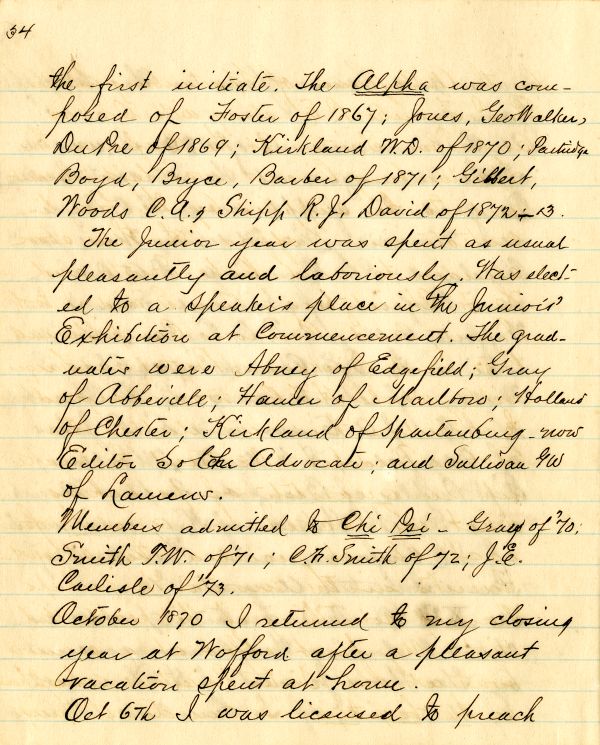 34
the first initiate. The Alpha was com-
posed of Foster of 1867; Jones, Geo Walker,
DuPre of 1869; Kirkland W.D. of 1870; Partridge
Boyd, Bryce, Barber of 1871; Gilbert,
Woods C.A., Shipp R.J., David of 1872 – 13.
The Junior year was spent as usual
pleasantly and laboriously. Was elect-
ed to a speaker's place in the Juniors'
Exhibition at Commencement. The grad-
uates were Abney of Edgefield; Gray
of Abbeville; Hamer of Marlboro; Holland
of Chester; Kirkland of Spartanburg - now
Editor So Chr Advocate; and Sullivan GW
of Laurens.
Members admitted to Chi Psi - Gray of '70;
Smith T.W. of '71; C.F. Smith of 72; J.E.
Carlisle of '73.
October 1870 I returned to my closing
year at Wofford after a pleasant
vacation spent at home.
Oct 6th I was licensed to preach